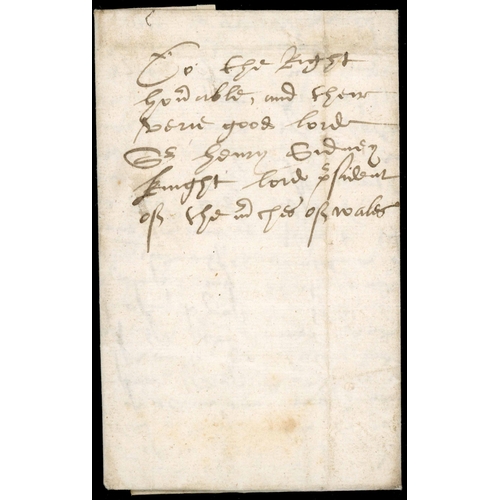 To the Right
hon̄able, and their
verie good lorde
Sr henry Sidney
knight lord p̱sident
of the m̄ches of wales